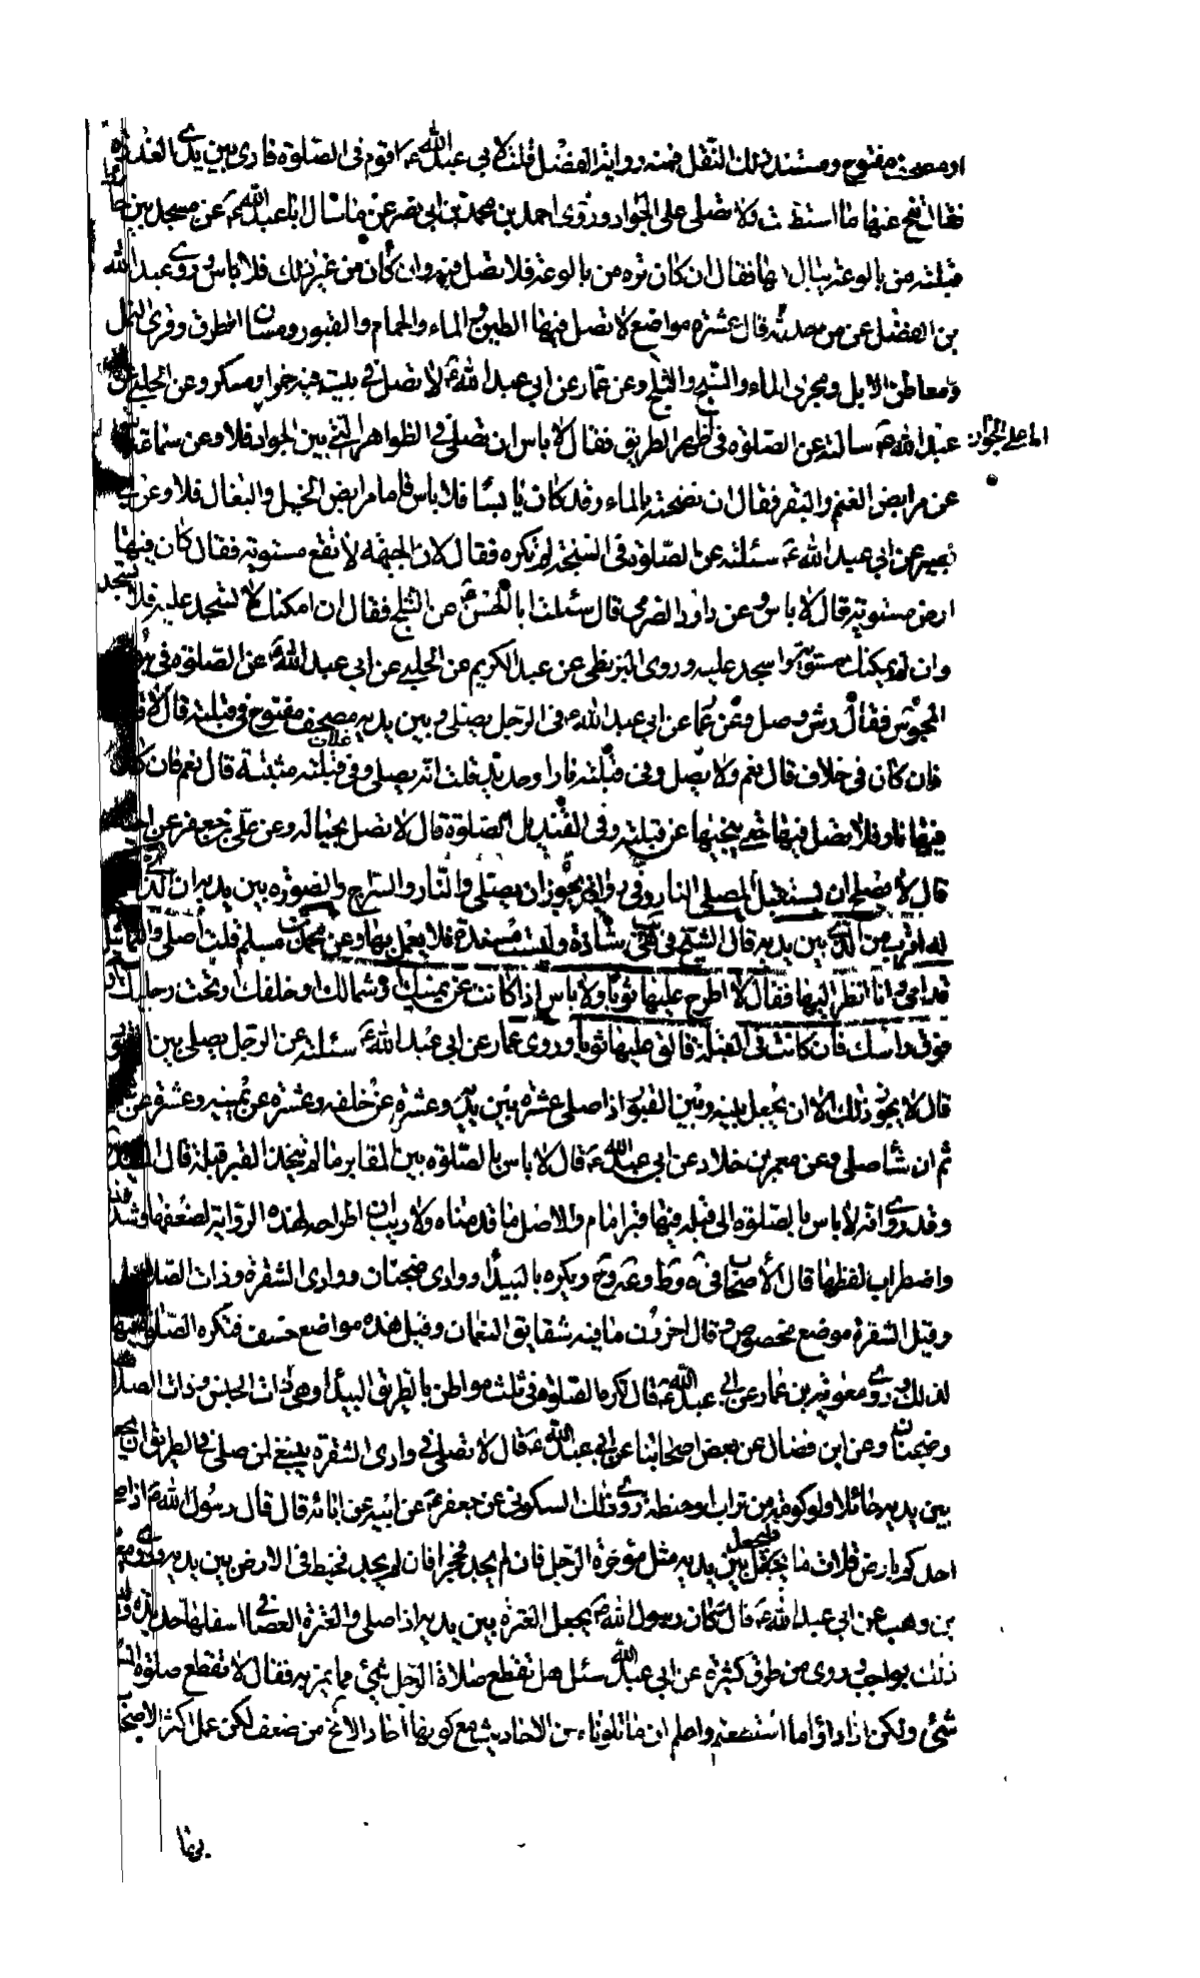 او مصحف مفتوح ومستند ذلك النقل فمنه رواية الفضل قلت لابي عبد الله ع اقوم في الصلوة فارى بين يدي العذرة
فقال تنح عنها ما استطعت ولا تصلى على الجواد وروى احمد بن محمد بن ابي نصر عن من سال ابا عبد الله ع عن مسجد ينز حائط
قبلته من بالوعة يبال فيها فقال ان كان نزه من بالوعة فلا تصل فيه وان كان من غير ذلك فلا باس وروى عبد الله
بن الفضل عن من حدثه قال عشرة مواضع لا تصل فيها الطين والماء والحمام والقبور ومسان الطرق وقرى النمل
ومعاطن الابل ومجرى الماء والسبخ والثلج وعن عمار عن ابي عبد الله ع لا تصل في بيت فيه خمر او مسكر وعن الحلبي عن
عبد الله ع سالته عن الصلوة في ظهر الطريق فقال لا باس ان تصلى في الظواهر التي بين الجواد فلا وعن سماعة
اما على الجواد
عن مرابض الغنم والبقر فقال ان نضحته بالماء وقد كان يابسا فلا باس فاما مرابض الخيل والبغال فلا وعن ابي
بصير عن ابي عبد الله ع سئلته عن الصلوة في السبخة لم تكره فقال لان الجبهة لا تقع مستوية فقال كان فيها
ارض مستوية قال لا باس وعن داود الصرمي قال سئلت ابا الحسن ع عن الثلج فقال ان امكنك لا تسجد عليه فلا تسجد
وان لم يمكنك فسوه واسجد عليه وروى البزنطي عن عبد الكريم عن الحلبي عن ابي عبد الله ع عن الصلوة في بيوت
المجوس فقال رش وصل وعن عمار عن ابي عبد الله ع في الرجل يصلى وبين يديه مصحف مفتوح في قبلته قال لا قلت
فان كان في غلاف قال نعم ولا يصل وفي قبلته نار او حديد قلت اله يصلى وفي قبلته مثبتة قال نعم فان كان
فيها نار فلا يصل فيها حتى ينحيها عن قبلته وفي القنديل الصلوة قال لا تصل بحياله وعن علي بن جعفر عن اخيه
قال لا يصلح ان يستقبل المصلى النار وفي رواية يجوز ان يصلى والنار والسراج والصورة بين يديه ان الذي
له اقرب من الذي بين يديه قال الشيخ في شاذة وليست مسندة فلا يعمل بها وعن محمد بن مسلم قلت اصلى والتماثيل
قدامي وانا انظر اليها فقال لا اطرح عليها ثوبا ولا باس اذا كانت عن يمينك وشمالك او خلفك او تحت رجليك او
فوق راسك فان كانت في القبلة فالق عليها ثوبا وروى عمار عن ابي عبد الله ع سئلته عن الرجل يصلى بين القبور
قال لا يجوز ذلك الا ان يجعل بينه وبين القبور اذا صلى عشرة بين يديه وعشرة عن خلفه وعشرة عن يمينه وعشرة عن
ثم ان شا صلى وعن معمر بن خلاد عن ابي عبد الله ع قال لا باس بالصلوة بين المقابر ما لم يتخذ القبر قبلة قال المفيد
وقد روى انه لا باس بالصلوة الى قبلة فيها قبر امام والاصل ما قدمناه ولا ريب ان اطراحه لهذه الرواية لضعفها وشذوذ
واضطراب لفظها قال الأصحاب في ويكره بالبيدا ووادي ضجنان ووادى الشقرة وذات الصلاصل
وقيل الشقرة موضع مخصوص وقال اخرون ما فيه شقايق النعمان وقيل هذه مواضع خسف فتكره الصلوة فيها
لذلك وروى معوية بن عمار عن ابي عبد الله ع قال تكره الصلوة في ثلث مواطن بالطريق البيدا وهي ذات الجيش وذات الصلا
وضجنان وعن ابن فضال عن بعض اصحابنا عن ابي عبد الله ع قال لا تصل في وادي الشقرة ينبغي لمن صلى في الطريق ان يجعل
بين يديه حائلا ولو كومة من تراب او خطه روى ذلك السكوني عن جعفر ع عن ابيه عن ابائه قال قال رسول الله ص اذا صلى
احدكم بارض فلاة فليجعل بين يديه مثل مؤخرة الرحل فان لم يجد فحجرا فان لم يجد فخط في الارض بين يديه وروى معوية
بن وهب عن ابي عبد الله ع قال كان رسول الله ص يجعل العنزة بين يديه اذا صلى والعنزة العصا في اسفلها حديدة وليس
ذلك بواجب روى من طرق كثيرة عن ابي عبد الله سئل هل تقطع صلاة الرجل شئ مما يمر به فقال لا تقطع صلوة المسلم
شئ ولكن ادراؤا ما استطعتم واعلم ان ما تلوناه من الاحاديث مع كونها اخاد لا تخ من ضعف لكن عمل اكثر الاصحاب
بها